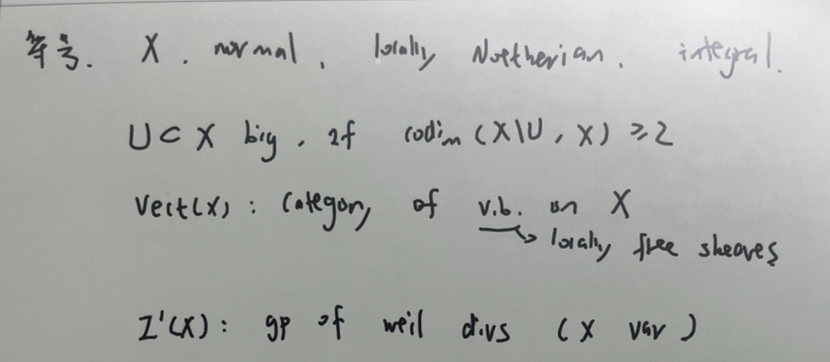 符号. X. normal, locally Noetherian, integral.
U⊂X big, if codim (X\U, X) ≥2
Vect(X): Category of v.b. on X
→ locally free sheaves
Z'(X): gp of weil divs (X var)